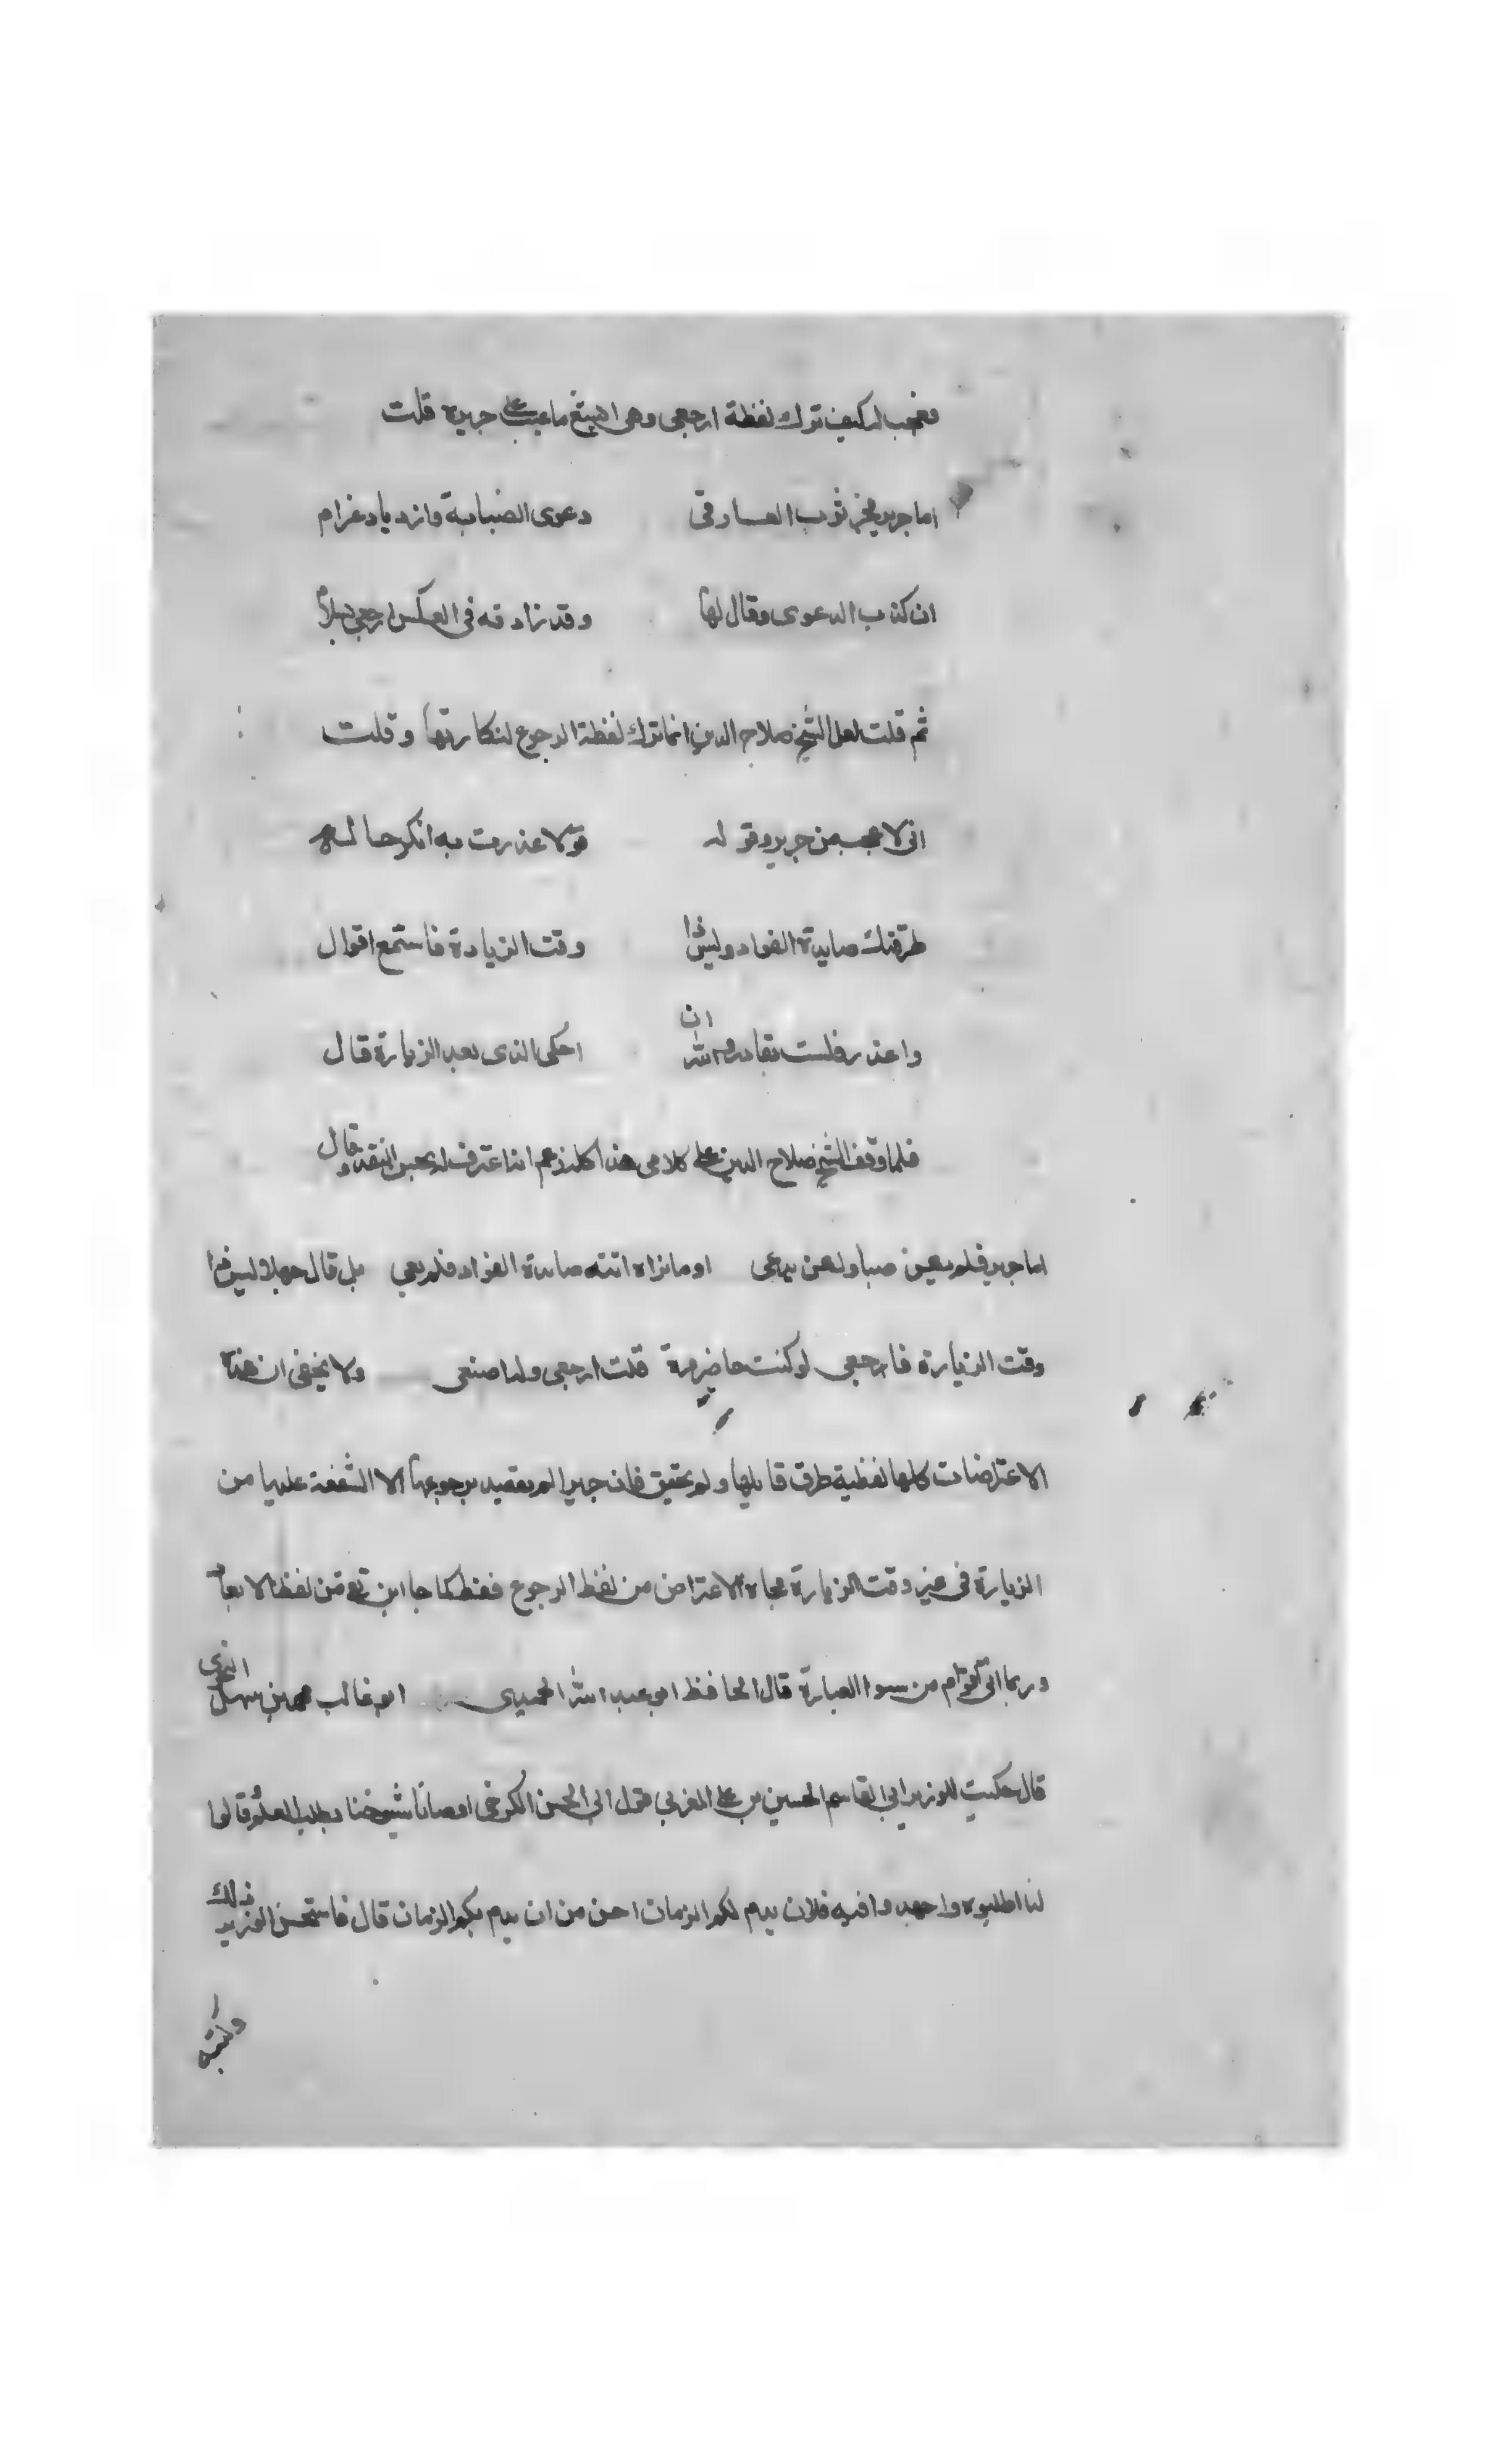 فتعجب لـه كيف ترك لفظة ارجعي وهي ابشع ما عيب على جريره قلت
اما جرير فجر ثوب العار في دعوى الصبابة وازدياد غرام
ان كذب الدعوى وقال لها وقد زارته في العكس ارجعي بسلام
ثم قلت لعل الشيخ صلاح الدين انما ترك لفظة الرجوع لنكارتها وقلت
اني لاعجب من جرير وقوله قولا عذرت به انكر حاله
طرقتك صايدة الفواد وليس ذا وقت الزيارة فاستمع اقوال
واعذر فلست بقادر والله ان احكي الذي بعد الزيارة قال
فلما وقف الشيخ صلاح الدين على كلامي هذا كله زعم انه اعترف له بحسن النقد وقال
اما جرير فلم يعن صبا ولعن يدعي او ما تراه اتته صايدة الفواد فلم يعي بل قال جهلا وليس ذا
وقت الزيارة فارجعي لو كنت حاضر مرة قلت ارجعي ولها صفعي ولا يخفى ان هذه
الاعتراضات كلها لفظية طرق قايلها ولم تحقق فان جريرا لم يقصد برجوعها الا الشفقة عليها من
الزيارة في غير وقت الزيارة فجاه الاعتراض من لفظ الرجوع فقط كما جا ابن من لفظ الابعا
وربما اتى اقوام من سوا العبارة قال الحافظ ابو عبد الله الحميدي ابو غالب محمد بن سهل النحوي
قال حكيت للوزير ابي القاسم الحسين بن علي المغربي قول ابي الحسن الكرخي اوصانا شيوخنا بطلب العلم وقالوا
لنا اطلبوه واجهدوا فيه فلان يدم لكم الزمان احسن من ان يدم بكم الزمان قال فاستحسن الوزير ذلك
وكتبه